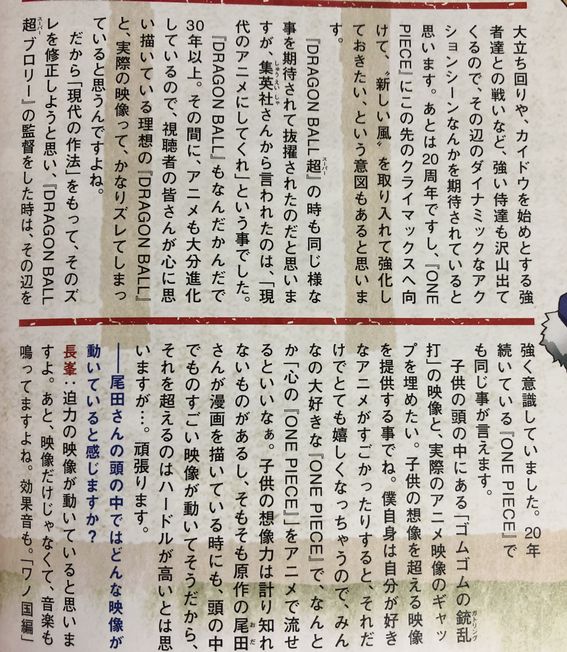 大立ち回りや、カイドウを始めとする強
者達との戦いなど、強い侍達も沢山出て
くるので、その辺のダイナミックなアク
ションシーンなんかを期待されていると
思います。あとは20周年ですし、『ONE
PIECE』にこの先のクライマックスへ向
けて、〝新しい風〟を取り入れて強化し
ておきたい、という意図もあると思いま
す。
『DRAGON BALL 超』の時も同じ様な
スーパー
事を期待されて抜擢されたのだと思いま
すが、集英社さんから言われたのは、「現
しゅうえいしゃ
代のアニメにしてくれ」という事でした。
『DRAGON BALL』もなんだかんだで
30年以上。その間に、アニメも大分進化
しているので、視聴者の皆さんが心に思
い描いている理想の『DRAGON BALL』
と、実際の映像って、かなりズレてしまっ
ていると思うんですよね。
だから「現代の作法」をもって、そのズ
レを修正しようと思い、『DRAGON BALL
超 ブロリー』の監督をした時は、その辺を
スーパー
強く意識していました。20年
続いている『ONE PIECE』で
も同じ事が言えます。
子供の頭の中にある「ゴムゴムの銃乱
ガトリング
打」の映像と、実際のアニメ映像のギャッ
プを埋めたい。子供の想像を超える映像
を提供する事でね。僕自身は自分が好き
なアニメがすごかったりすると、それだ
けでとても嬉しくなっちゃうので、みん
なの大好きな『ONE PIECE』で、なんと
か「心の『ONE PIECE』」をアニメで流せ
るといいなぁ。子供の想像力は計り知れ
ないものがあるし、そもそも原作の尾田
おだ
さんが漫画を描いている時にも、頭の中
でものすごい映像が動いてそうだから、
それを超えるのはハードルが高いとは思
いますが…。頑張ります。
――尾田さんの頭の中ではどんな映像が
動いていると感じますか？
長峯：迫力の映像が動いていると思いま
すよ。あと、映像だけじゃなくて、音楽も
鳴ってますよね。効果音も。「ワノ国編」